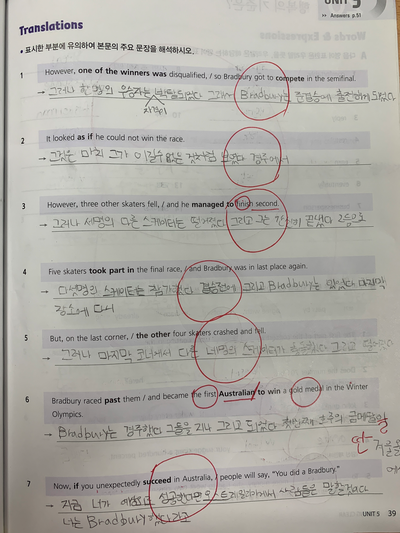 UNIT 5
Answers p.51
Translations
• 표시한 부분에 유의하여 본문의 주요 문장을 해석하시오.
1 However, one of the winners was disqualified, / so Bradbury got to compete in the semifinal.
→ 그러나 한 명의 우승자는 박탈되었다 그래서 Bradbury는 준결승에 출전하게 되었다
자격이
2 It looked as if he could not win the race.
→ 그것은 마치 그가 이길수 없는 것처럼 보였다 경주에서
3 However, three other skaters fell, / and he managed to finish second.
→ 그러나 세명의 다른 스케이터는 떨어졌다 그리고 그는 간신히 끝냈다 2등으로
4 Five skaters took part in the final race, / and Bradbury was in last place again.
→ 다섯명의 스케이터는 참가했다 결승전에 그리고 Bradbury는 있었다 마지막
장소에 다시
5 But, on the last corner, / the other four skaters crashed and fell.
→ 그러나 마지막 코너에서 다른 네명의 스케이터가 충돌했다 그리고
6 Bradbury raced past them / and became the first Australian to win a gold medal in the Winter
Olympics.
→ Bradbury는 경주했다 그들을 지나 그리고 되었다 첫번째 호주의 금메달을
딴
7 Now, if you unexpectedly succeed in Australia, / people will say, “You did a Bradbury.”
→ 지금 너가 성공한다면 오스트레일리아에서 사람들은 말할것이다
너는 Bradbury 했다 라고
UNIT 5 39